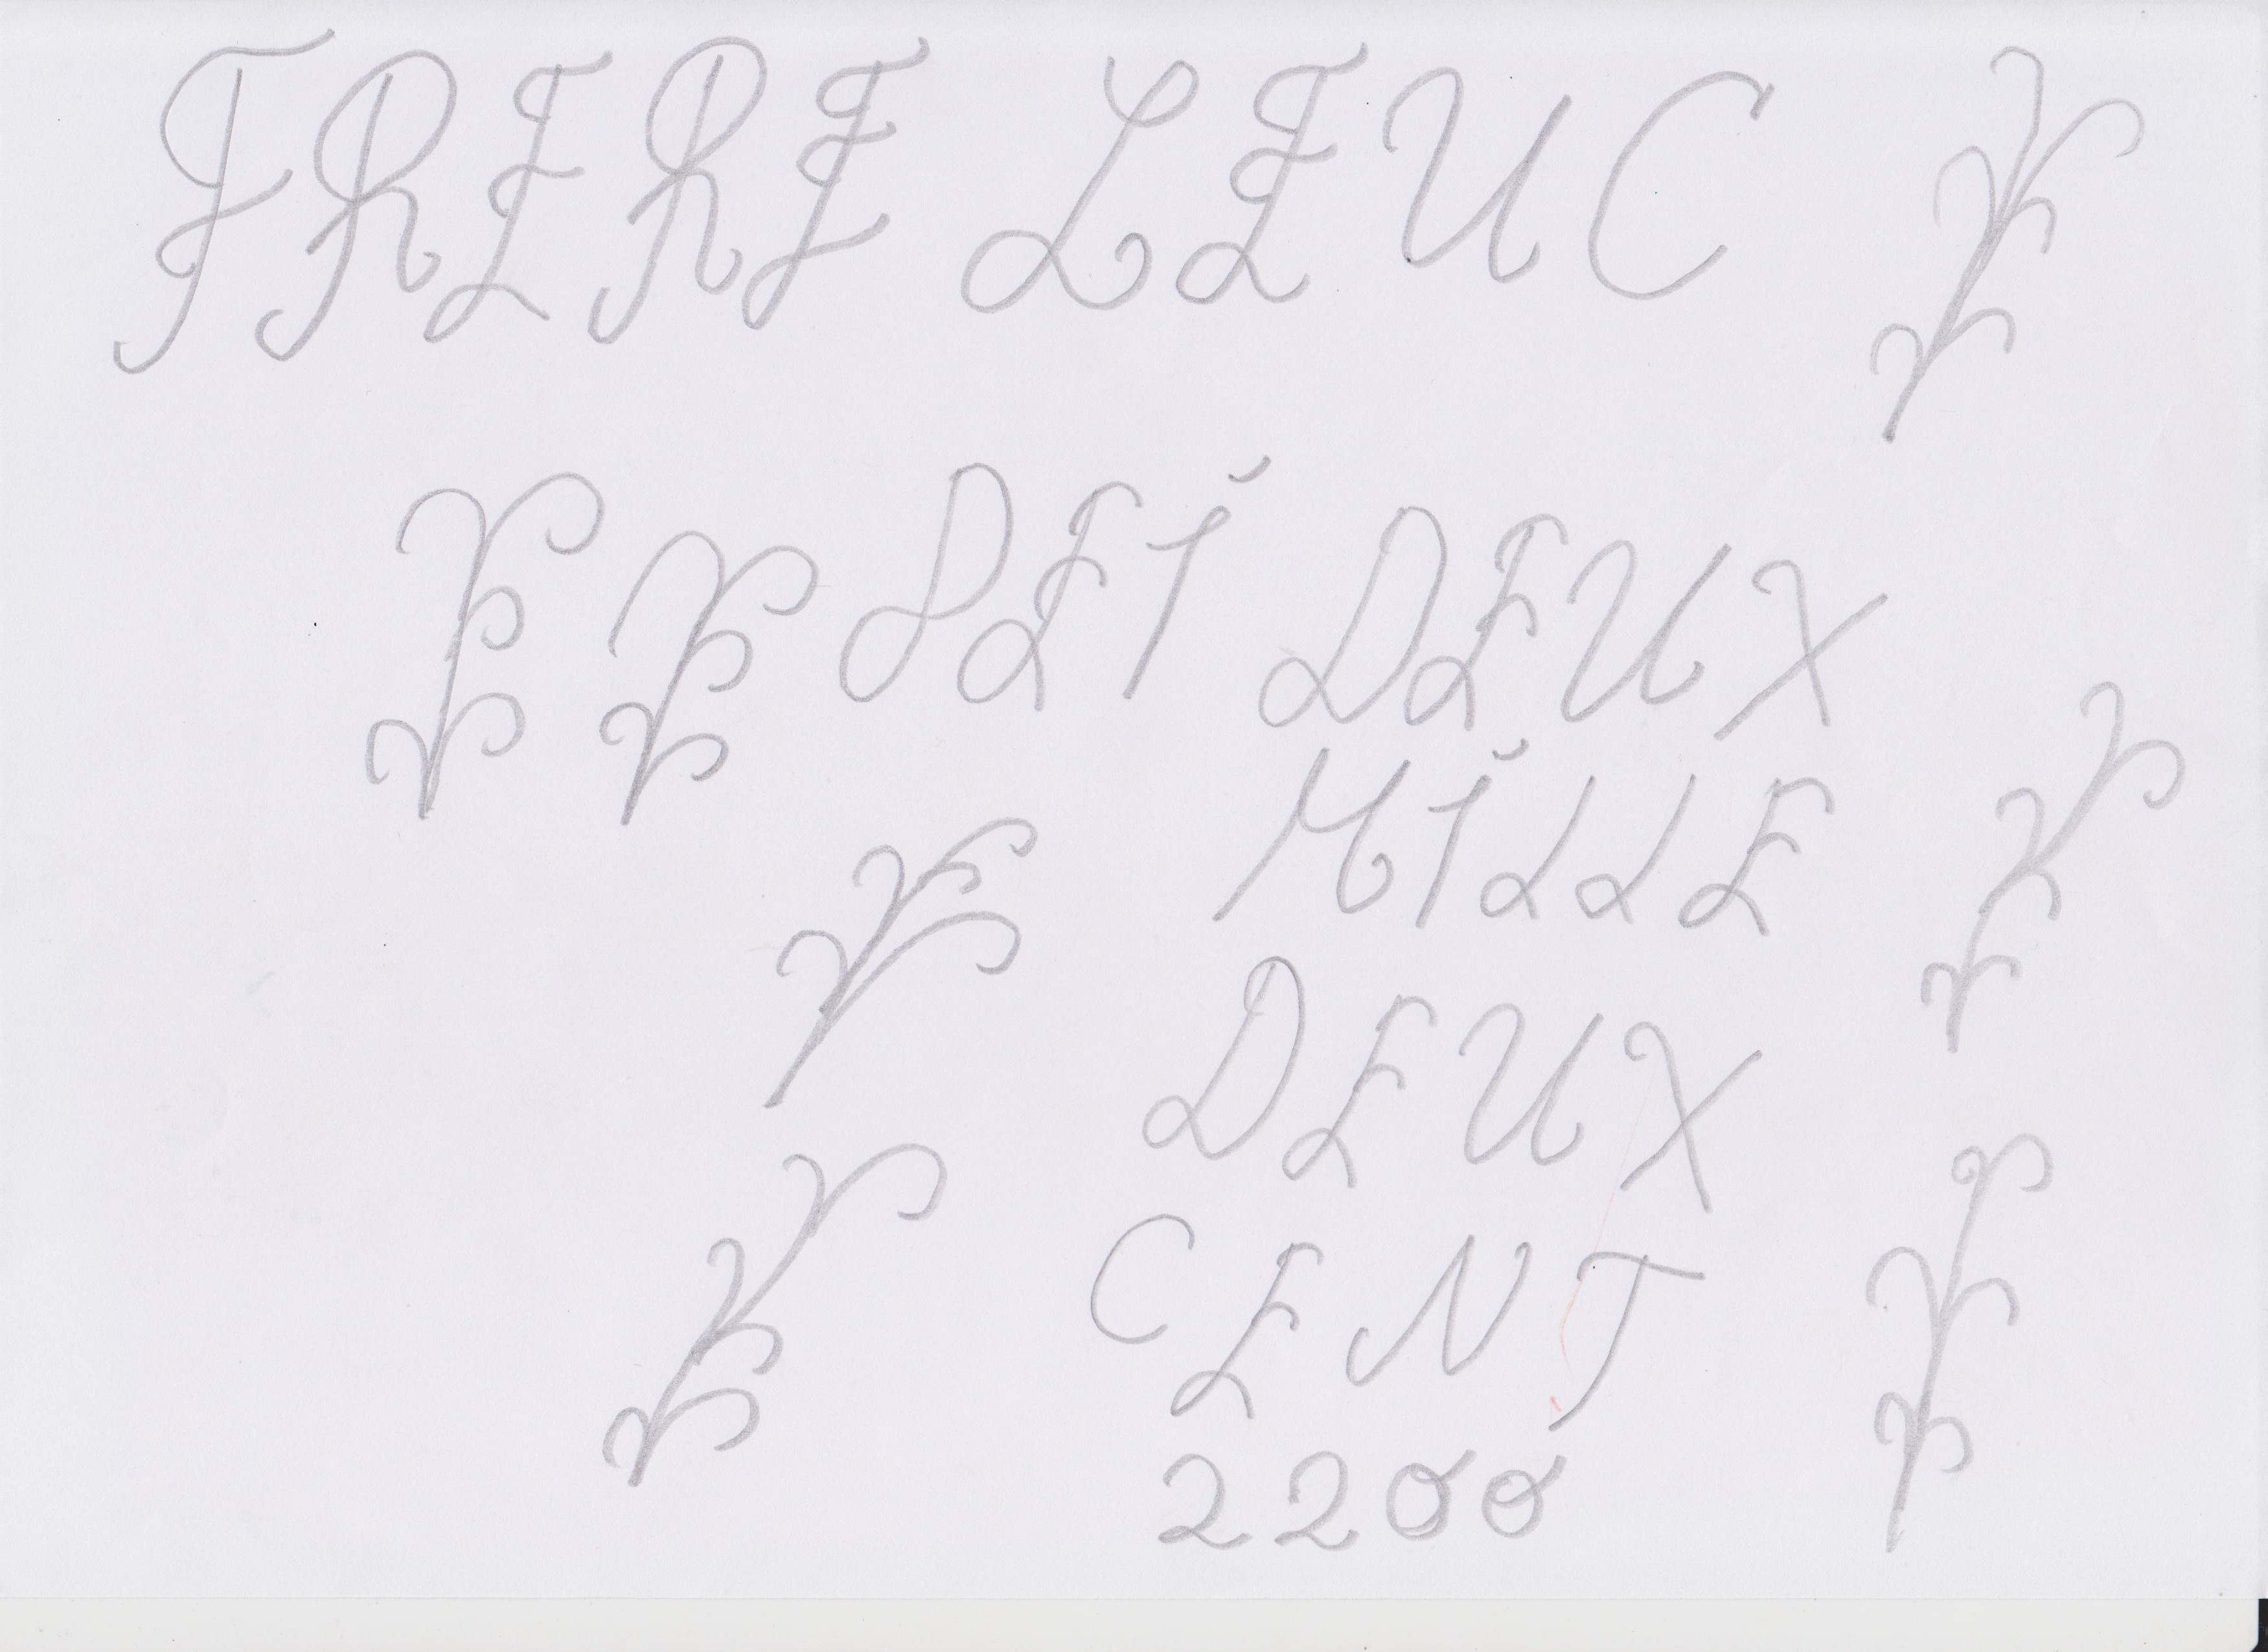 FRERE LEUC
PEI DEUX
MILLE
DEUX
CENT
2200